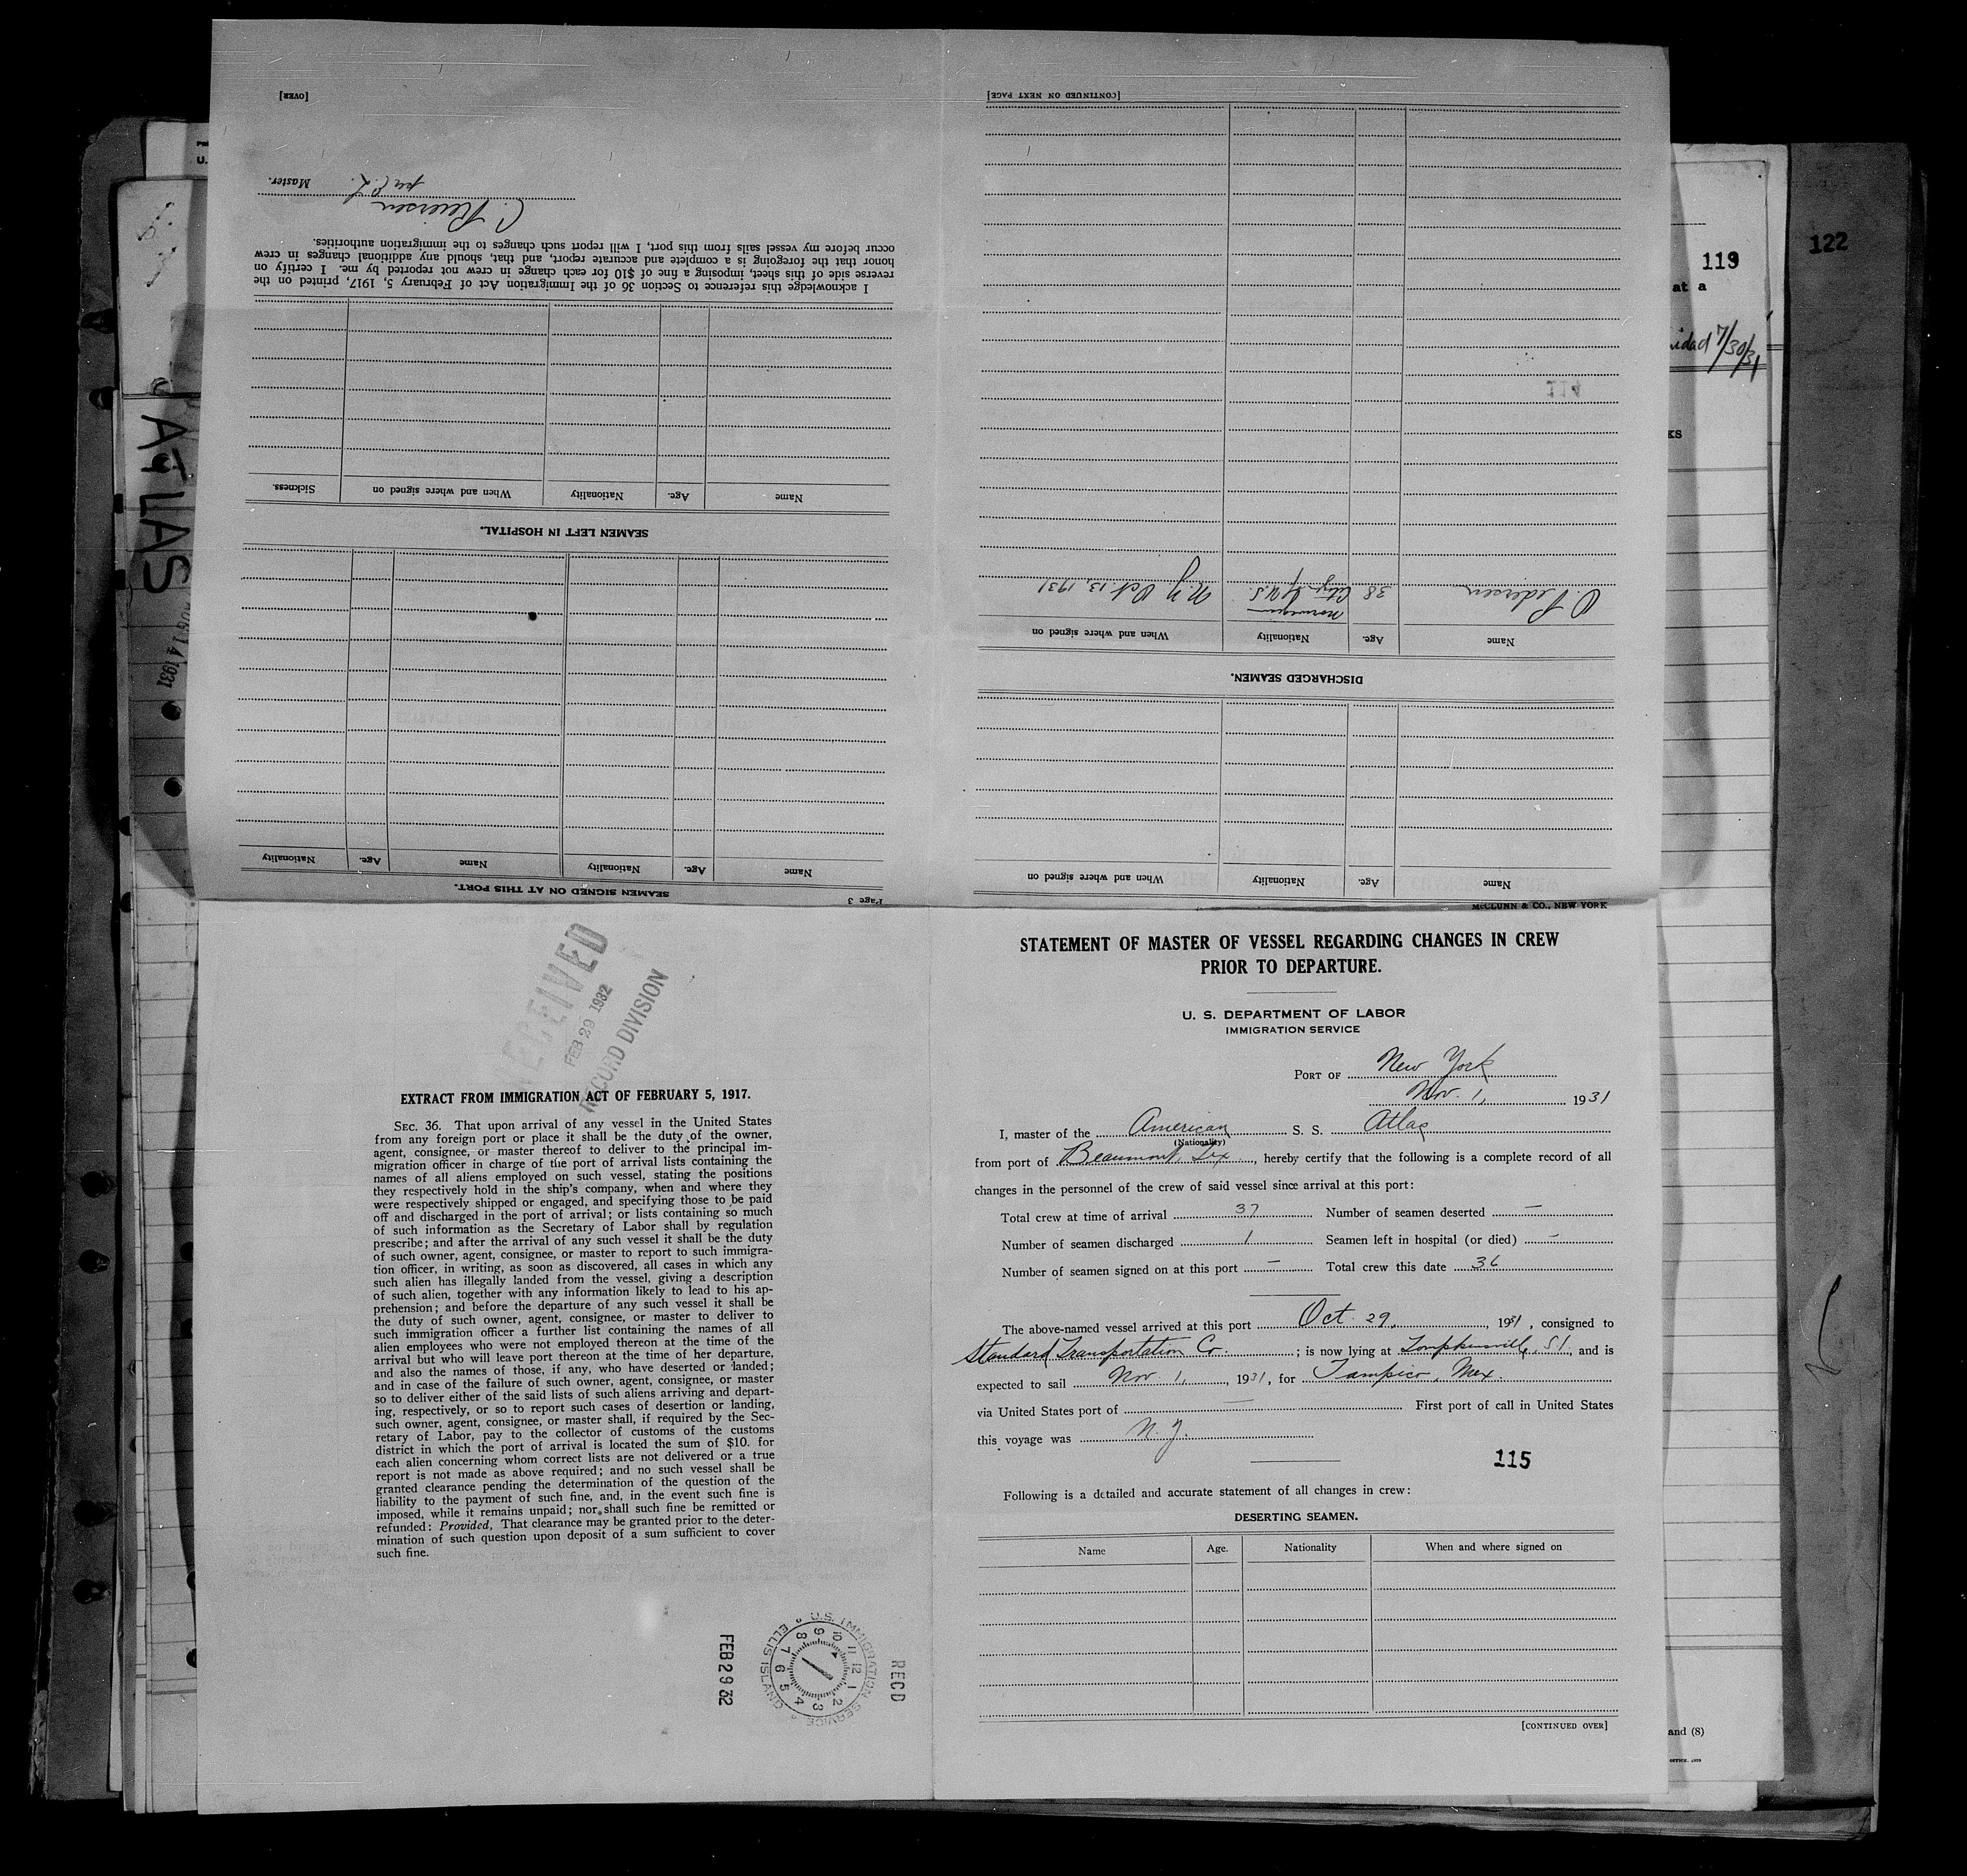 STATEMENT OF MASTER OF VESSEL REGARDING CHANGES IN CREW
PRIOR TO DEPARTURE.
U. S. DEPARTMENT OF LABOR
IMMIGRATION SERVICE
PORT OF New York
Nov. 1, 1931
I, master of the American S. S. Atlas
(Nationality)
from port of Beaumont, Tex, hereby certify that the following is a complete record of all
changes in the personnel of the crew of said vessel since arrival at this port:
Total crew at time of arrival 37 Number of seamen deserted —
Number of seamen discharged 1 Seamen left in hospital (or died) —
Number of seamen signed on at this port — Total crew this date 36
The above-named vessel arrived at this port Oct. 29, 1931, consigned to
Standard Transportation Co. ; is now lying at Tompkinsville, S I, and is
expected to sail Nov. 1, 1931, for Tampico, Mex.
via United States port of — First port of call in United States
this voyage was N. Y.
115
Following is a detailed and accurate statement of all changes in crew:
DESERTING SEAMEN.
Name Age. Nationality When and where signed on
[CONTINUED OVER]
McCLUNN & CO., NEW YORK
Name Age. Nationality When and where signed on
DISCHARGED SEAMEN.
Name Age. Nationality When and where signed on
Norwegian
O. Pedersen 38 U.S. N.Y Oct. 13, 1931
114
[CONTINUED ON NEXT PAGE]
Page 3
SEAMEN SIGNED ON AT THIS PORT.
Name Age. Nationality Name Age. Nationality
SEAMEN LEFT IN HOSPITAL.
Name Age. Nationality When and where signed on Sickness.
I acknowledge this reference to Section 36 of the Immigration Act of February 5, 1917, printed on the
reverse side of this sheet, imposing a fine of $10 for each change in crew not reported by me. I certify on
honor that the foregoing is a complete and accurate report, and that, should any additional changes in crew
occur before my vessel sails from this port, I will report such changes to the immigration authorities.
C. Reiersen
per Master.
[OVER]
RECEIVED
FEB 29 1932
RECORD DIVISION
EXTRACT FROM IMMIGRATION ACT OF FEBRUARY 5, 1917.
SEC. 36. That upon arrival of any vessel in the United States
from any foreign port or place it shall be the duty of the owner,
agent, consignee, or master thereof to deliver to the principal im-
migration officer in charge of the port of arrival lists containing the
names of all aliens employed on such vessel, stating the positions
they respectively hold in the ship's company, when and where they
were respectively shipped or engaged, and specifying those to be paid
off and discharged in the port of arrival; or lists containing so much
of such information as the Secretary of Labor shall by regulation
prescribe; and after the arrival of any such vessel it shall be the duty
of such owner, agent, consignee, or master to report to such immigra-
tion officer, in writing, as soon as discovered, all cases in which any
such alien has illegally landed from the vessel, giving a description
of such alien, together with any information likely to lead to his ap-
prehension; and before the departure of any such vessel it shall be
the duty of such owner, agent, consignee, or master to deliver to
such immigration officer a further list containing the names of all
alien employees who were not employed thereon at the time of the
arrival but who will leave port thereon at the time of her departure,
and also the names of those, if any, who have deserted or landed;
and in case of the failure of such owner, agent, consignee, or master
so to deliver either of the said lists of such aliens arriving and depart-
ing, respectively, or so to report such cases of desertion or landing,
such owner, agent, consignee, or master shall, if required by the Sec-
retary of Labor, pay to the collector of customs of the customs
district in which the port of arrival is located the sum of $10. for
each alien concerning whom correct lists are not delivered or a true
report is not made as above required; and no such vessel shall be
granted clearance pending the determination of the question of the
liability to the payment of such fine, and, in the event such fine is
imposed, while it remains unpaid; nor shall such fine be remitted or
refunded: Provided, That clearance may be granted prior to the deter-
mination of such question upon deposit of a sum sufficient to cover
such fine.
RECD
U.S. IMMIGRATION SERVICE
ELLIS ISLAND
12 1 2 3 4 5 6 7 8 9 10 11
FEB 29 32
ATLAS
14 1931
119
at a
7/30/31
122
and (8)